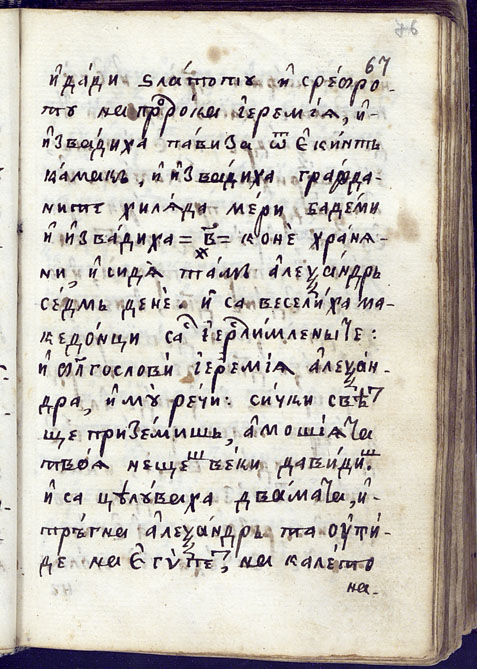 76
67
и҆ да́ди ѕла́тоту и҆ сре́фро-
ту на про҇ро́ка і҆еремі́ѧ, и҆-
и҆звади́ха па́виза ѿ є҆ки́нть
ка́макь, и҆ и҆зва́диха гражда-
ните хилѧ́да ме́ри баде́ми
и҆ и҆зва́диха = в҃ = конѐ хранѧ́-
ни, и҆ сидѧ̀ та́мь а҆леѯа́ндрь
се́дмь денѐ. и҆ са весели́ха ма-
кедо́нци са і҆ер҇лимлены те:
и҆ бл҃гослови і҆еремі́ѧ а҆леѯа́н-
дра, и҆ му̀ ре́чи: си́чки свѣт
ще призе́мишь, а҆мо
твоѧ̀ не́щешь ве́ки да ви́дишь.
и҆ са цѣлу́ваха два́мата, и҆-
тре́гна а҆леѯа́ндрь та ѻути́-
де на є҆ги́петь, на кале́то
на-